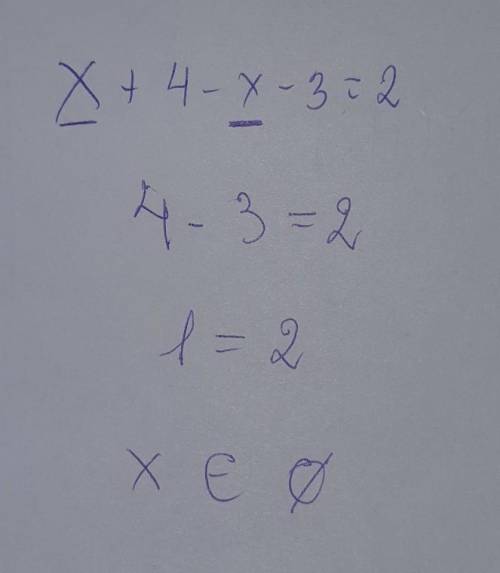 X + 4 - x - 3 = 2
4 - 3 = 2
1 = 2
X ∈ Ø